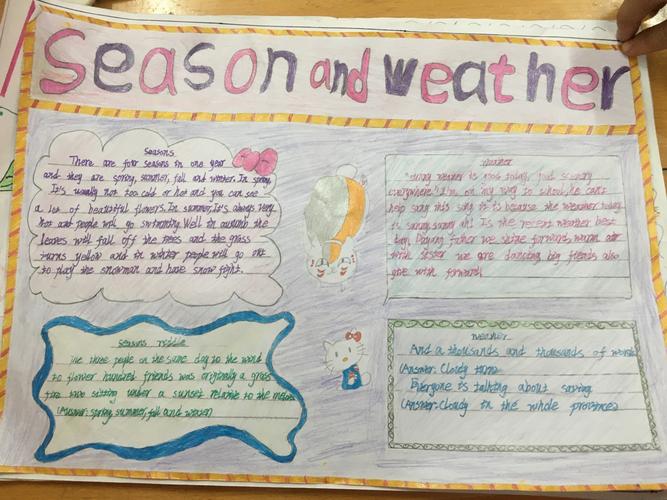 Season and weather
seasons
There are four seasons in one year
and they are spring, summer, fall and winter. In spring,
It's usually not too cold or hot and you can see
a lot of beautiful flowers. In summer, It's always very
hot and people will go swimming. Well in autumn the
leaves will fall off the trees and the grass
turns yellow and in winter people will go out
to play the snowman and have snow fight.
weather
weather is good today, good scenery
everywhere" I'm on my way to school, he can't
help say this sing it is because the weather today
is sunny sunny ah! Is the recent weather best
day, Daying father we shine forward, warm air
with sister we are dancing big friends also
got with forward
seasons riddle
three people on the same day to the wind
to flower hundred friends was originally a grass
two sitting under a sunset relative to the
(Answer: spring, summer, fall and
weather
And a thousands and thousands of words
(Answer: Cloudy turn
Everyone is talking about saving
(Answer: Cloudy in the whole province)